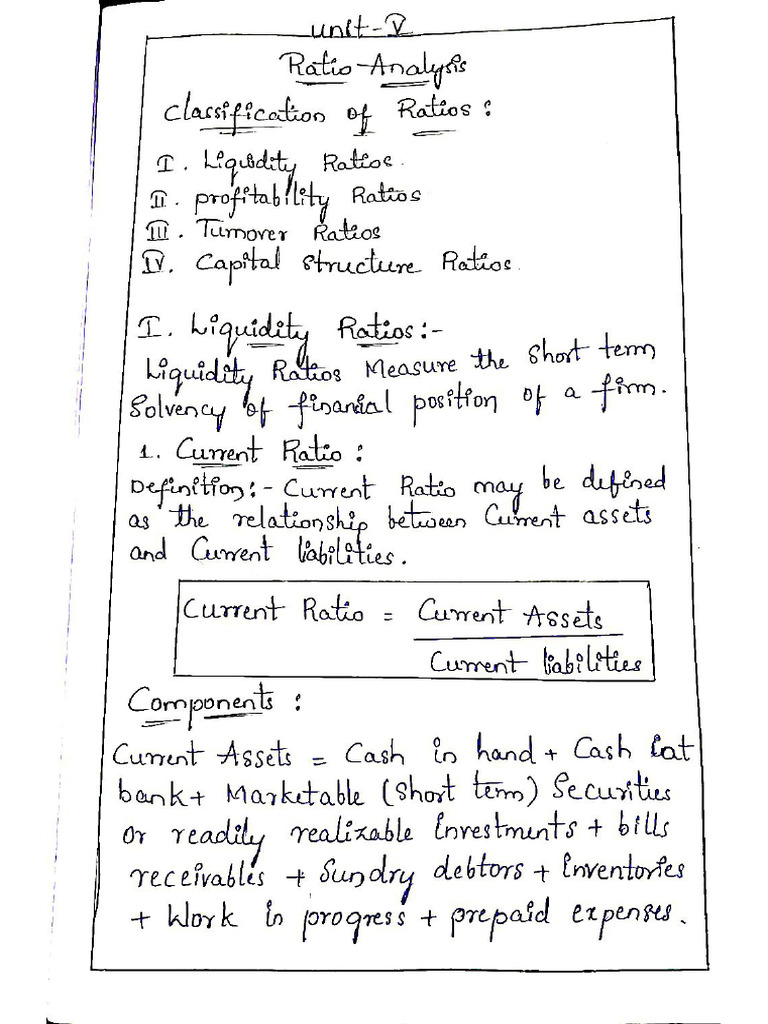 Unit-V
Ratio-Analysis
Classification of Ratios :
I. Liquidity Ratios.
II. profitability Ratios
III. Turnover Ratios
IV. Capital structure Ratios.
I. Liquidity Ratios:-
Liquidity Ratios Measure the short term
Solvency of finanial position of a firm.
1. Current Ratio :
Definition:- Current Ratio may be defined
as the relationship between Current assets
and Current liabilities.
Current Ratio = Current Assets
Current liabilities
Components :
Current Assets = Cash in hand + Cash at
bank + Marketable (short term) Securities
or readily realizable investments + bills
receivables + Sundry debtors + Inventories
+ Work in progress + prepaid expenses.